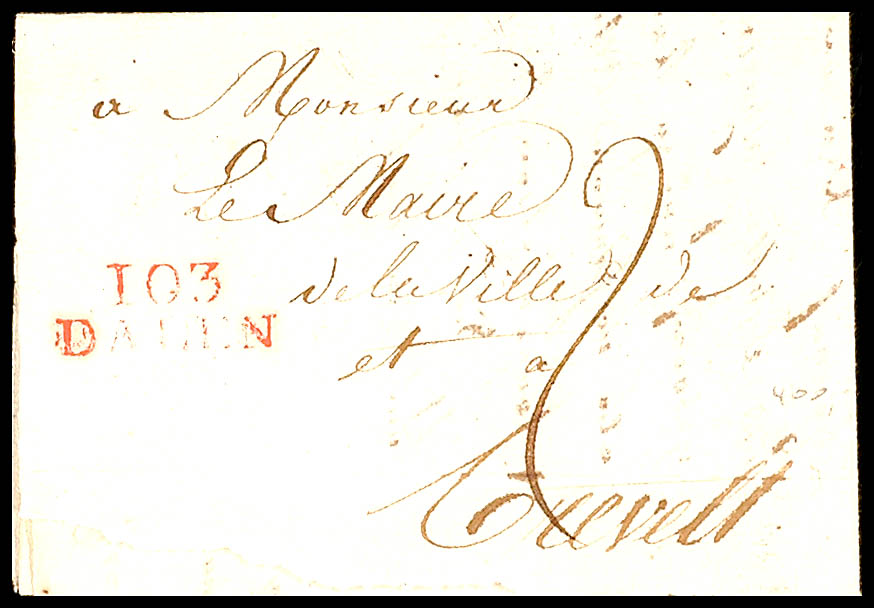 à Monsieur
Le Maire
de la Ville de
et a
Crevelt
103
DALEN
2
400